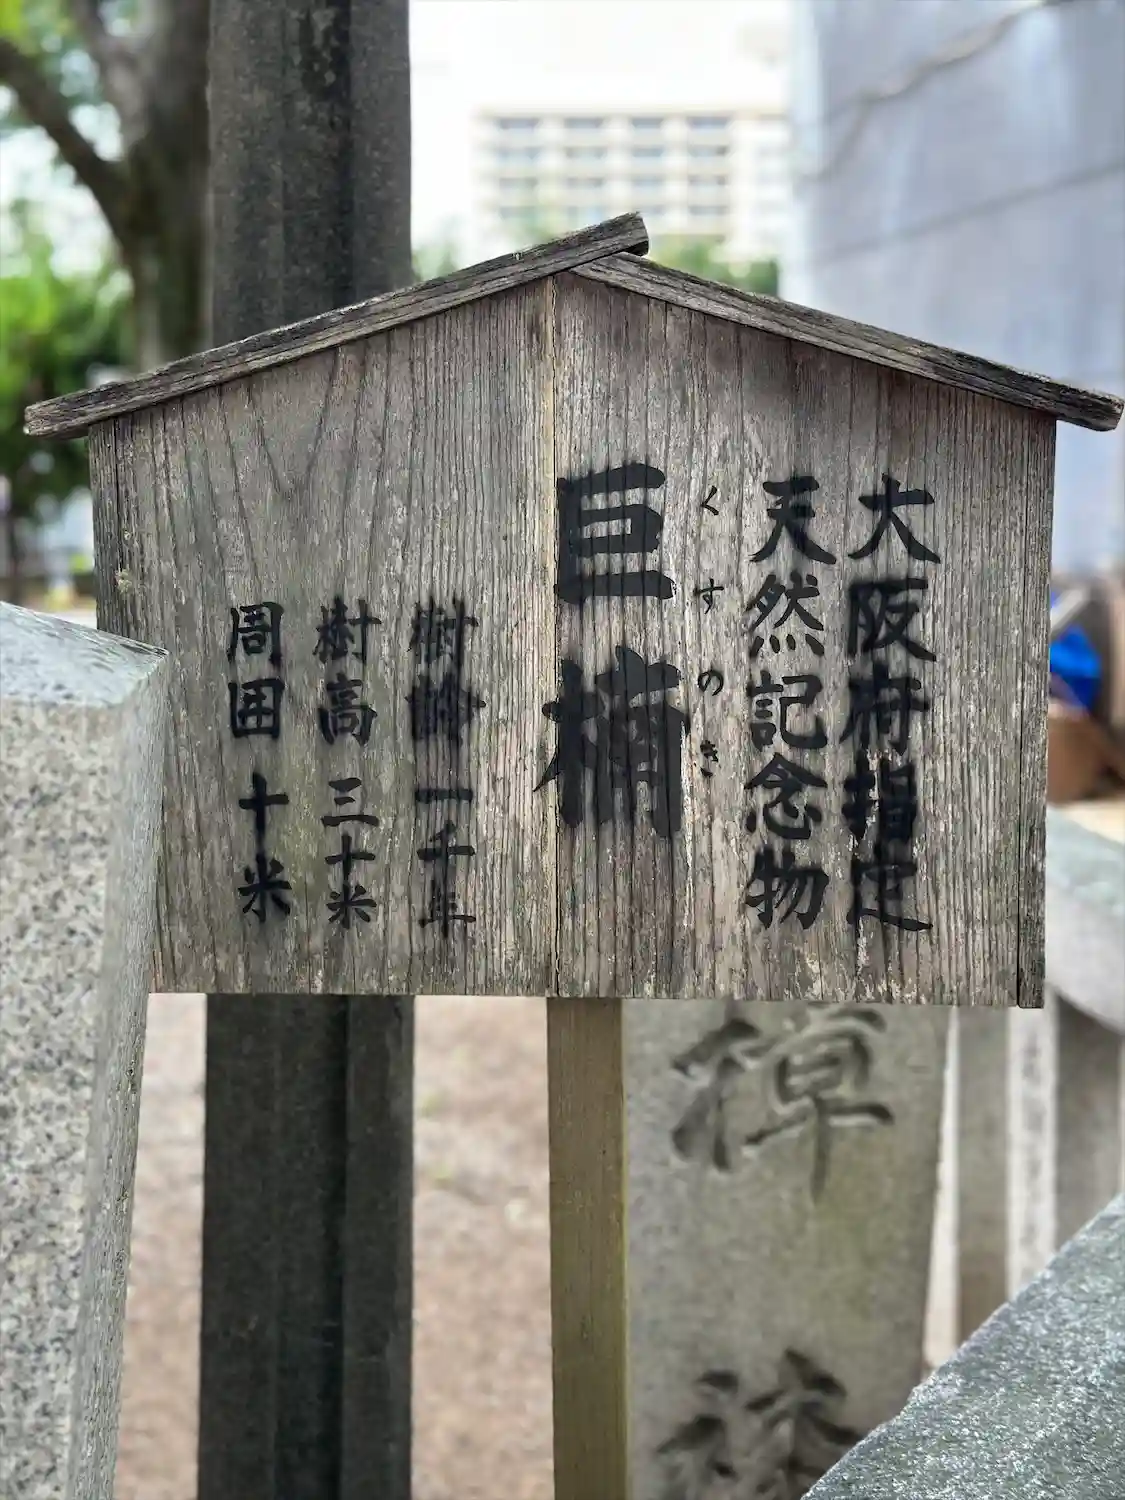 大阪府指定
天然記念物
くすのき
巨楠
樹齢一千年
樹高 三十米
周囲 十米